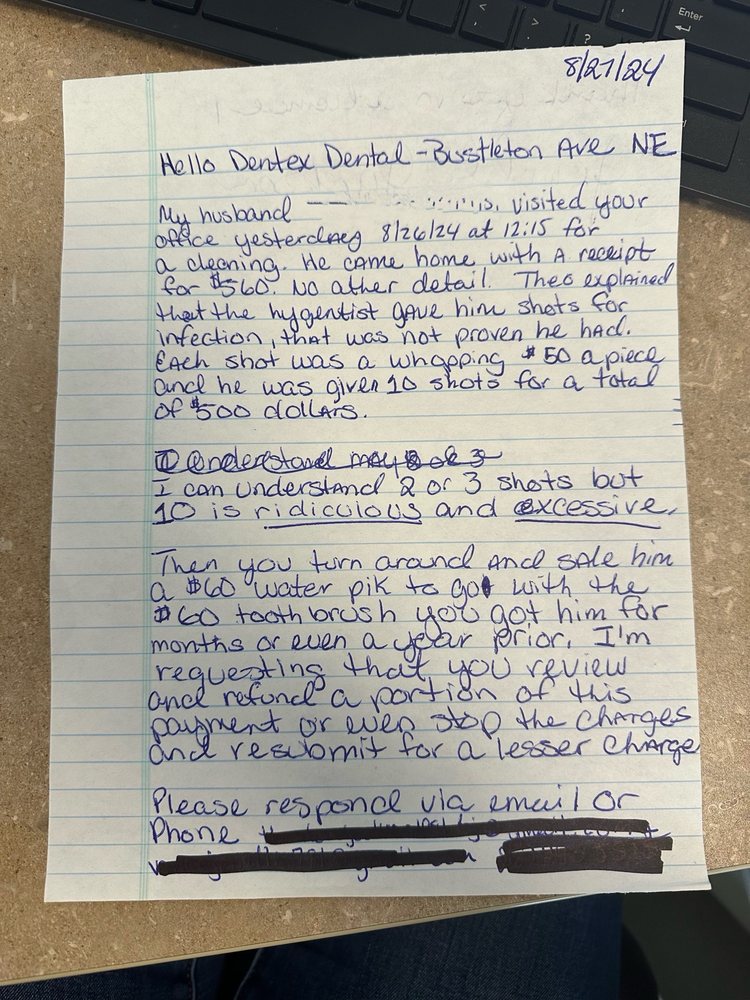 Enter
8/27/24
Hello Dentex Dental - Bustleton Ave NE
My husband visited your
office yesterdaey 8/26/24 at 12:15 for
a cleaning. He came home with A receipt
for $560. No other detail. Theo explained
that the hygentist gave him shots for
infection, that was not proven he had.
Each shot was a whopping $50 a piece
and he was given 10 shots for a total
of $500 dollars.
I understand may 2 or 3
I can understand 2 or 3 shots but
10 is ridiculous and excessive.
Then you turn around and sale him
a $60 water pik to go with the
$60 toothbrush you got him for
months or even a year prior. I'm
requesting that you review
and refund a portion of this
payment or even stop the charges
and resubmit for a lesser charge
Please respond via email or
Phone